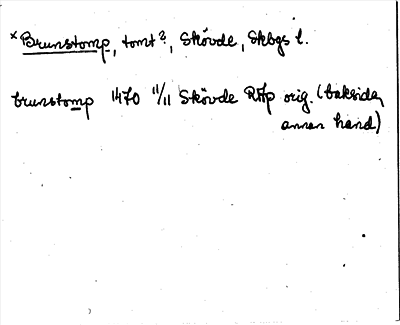 × Brunstomp, tomt?, Skövde, Skbgs l.
brunstomp 1470 11/11 Skövde RAp orig. (baksidan,
annan hand)